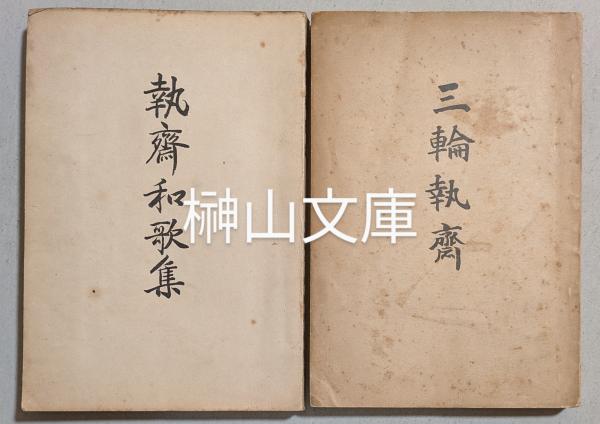 三輪執齋
執齋和歌集
榊山文庫